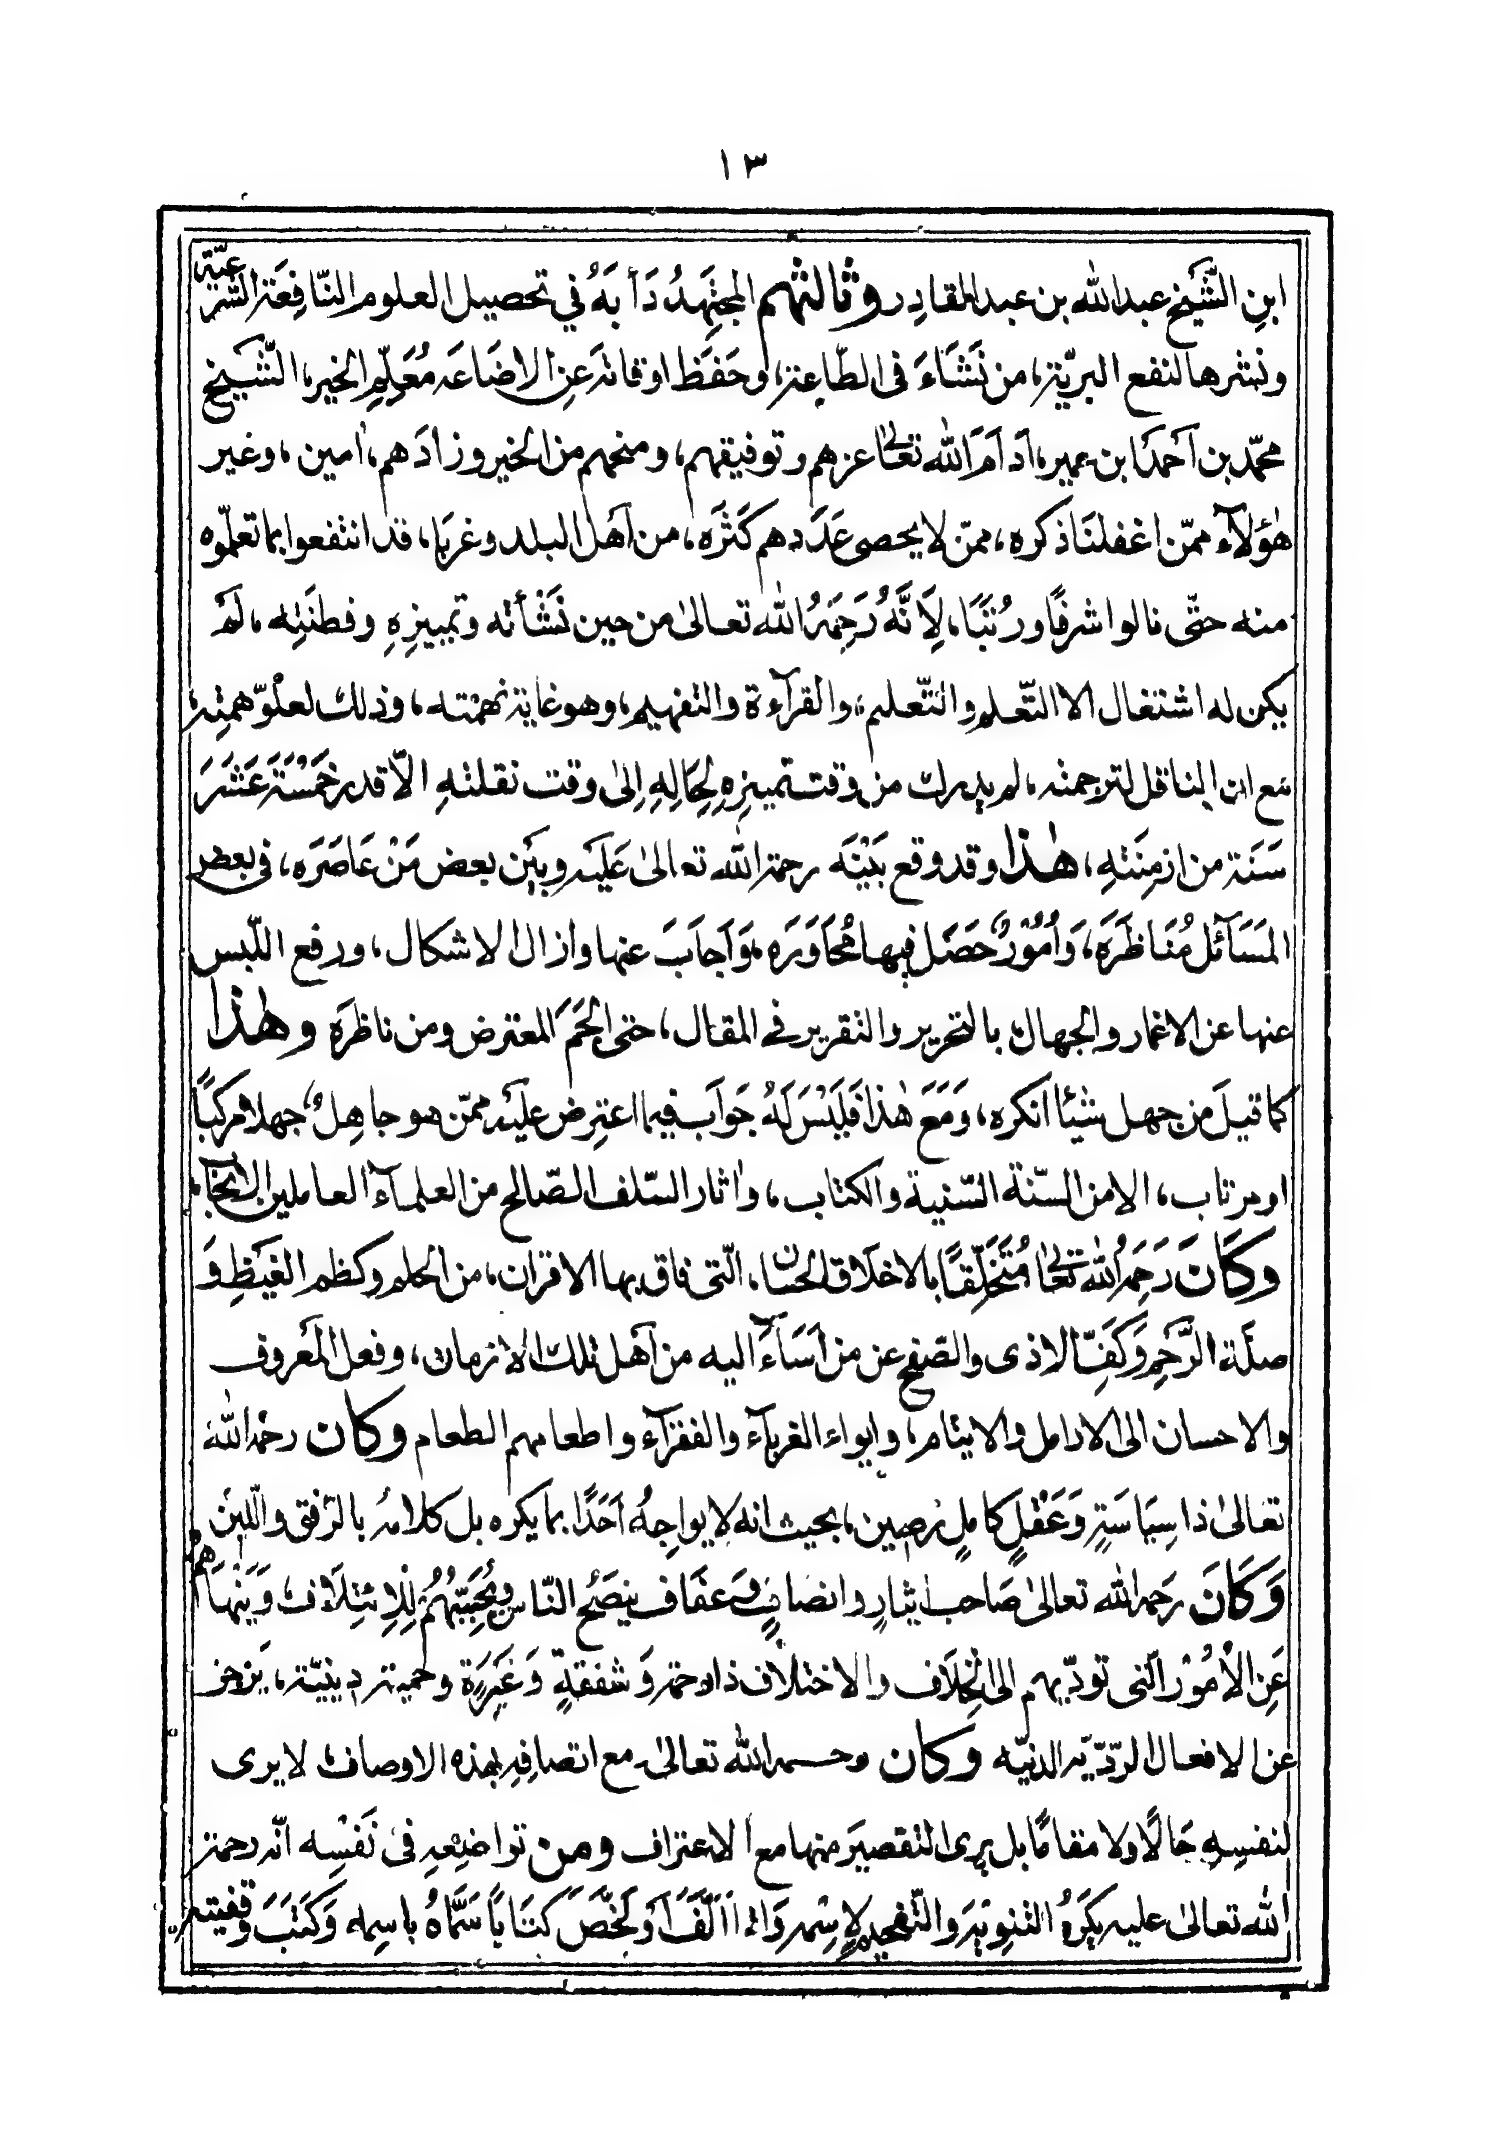 ١٣
ابنِ الشَّيْخ عبد الله بن عبد القادِر وثالثهم المجتَهِدُ دَأبَهُ في تحصيل العلوم النَّافِعَة الشرعيّة
ونشرها لنفع البريّة، من نَشَاءَ فى الطّاعة، وحَفَظ اوقاته عن الاضَاعَه مُعَلِّمِ الخير، الشَّيخ
محمّد بن اَحْمَد ابن عمير، اَدَامَ الله تعالىٰ عزهم وتوفيقهم، ومنحهم من الخير وزادَهم، اٰمين، وغير
هٰؤلآء ممّن اغفلنَا ذكره، ممّن لا يحصى عَدَدهم كَثْرَه، من اَهل البلد وغربَا، قد انتفعوا بما تعلموه
منه حتّى نالوا شرفًا ورُتَبًا، لِاَنَّهُ رَحِمَهُ الله تعالىٰ من حين نَشْأته وتمييزِهِ وفطنتِه، لَمْ
يكن له اشتغال الا التّعلم والتّعليم، والقرآءة والتفهيم، وهو غاية نهمته، وذلك لعلوّ همتِه،
مع ان الناقل لترجمته، لم يدرك من وقت تمييزِهِ لِحَالِهِ اِلىٰ وقت نقلتهِ الّا قدر خَمْسَةَ عَشَرَ
سَنَة من ازمِنَتهِ، هٰذا وقد وقع بَيْنَه رحمة الله تعالىٰ عَلَيْه وبيْن بعض مَنْ عَاصَرَه، فى بعض
المَسَآئل مُنَاظَرَه، وَاُمُوْرٌ حَصَل فيها مُحَاوَرَه، وَاَجاَبَ عنها وازال الاشكال، ورفع اللّبس
عنها عن الاغمار والجهال، بالتحرير والتقرير في المقال، حتى الجَمَ المعترض ومن ناظرَه وهٰذا
كما قيلَ من جهل شيْئا انكره، وَمَعَ هٰذا فَلَيْسَ لَهُ جَوَاَب فيما اعترض عليْه ممّن هو جاهِلٌ، جهلا مركبًا
او مرتاب، الا من السّنّة السّنية والكتاب، واٰثار السّلف الصّالح من العلمآء العاملين الانجاب،
وكَانَ رَحِمَهُ الله تعالىٰ مُتَخَلِّقًا بالاخلَاق الحسان، الّتى فاق بها الاقران، من الحلم وكظم الغيْظِ وَ
صلَة الرَّحِم وَكَفِّ الاذى والصّفح عن من اَسَآءَ اليه من اَهل تلك الازمان، وفعل المَعْروف
والاحسان الى الارامل والايتام، وايواء الغربآء والفقرآء واطعامهم الطعام وكان رحمهُ اللهُ
تعالىٰ ذا سِيَاسَةٍ وَعَقْلٍ كاملٍ رصين، بحيث انه لا يواجِهُ اَحَدًا بما يكره بل كلامهُ بالرّفق واللّين
وَكَانَ رَحمه الله تعالىٰ صَاحب ايثارٍ وانصافٍ وَعفَاف ينصَحُ النّاس ويُحَبِّبُهُمْ لِلاِئتِلَاف، وَيَنْهَاهم
عَنِ الاُمُوْر الّتى تودّيهم الى الخِلَاف والاختلاف ذا رحمة وَشفقةٍ وَغَيْرَة وحمية دينيّة، يزجر
عن الافعال الردّيّه الدنيّه وكان رحمه الله تعالىٰ مع اتصافِهِ بهذه الاوصاف، لا يرى
لنفسِهِ حَالًا ولا مقامًا بل يرى التقصيرَ منها مع الاعتراف ومن تواضعِهِ فى نَفْسِه انّه رحمة
الله تعالىٰ عليه يكرَهُ التنوِيْهَ والتّفخيم لاِسْمه وَاذا اَلَّفَ اَوْ لخَّصَ كتَاباً سَمَّاهُ باسمه وَكَتَبَ وقفيته